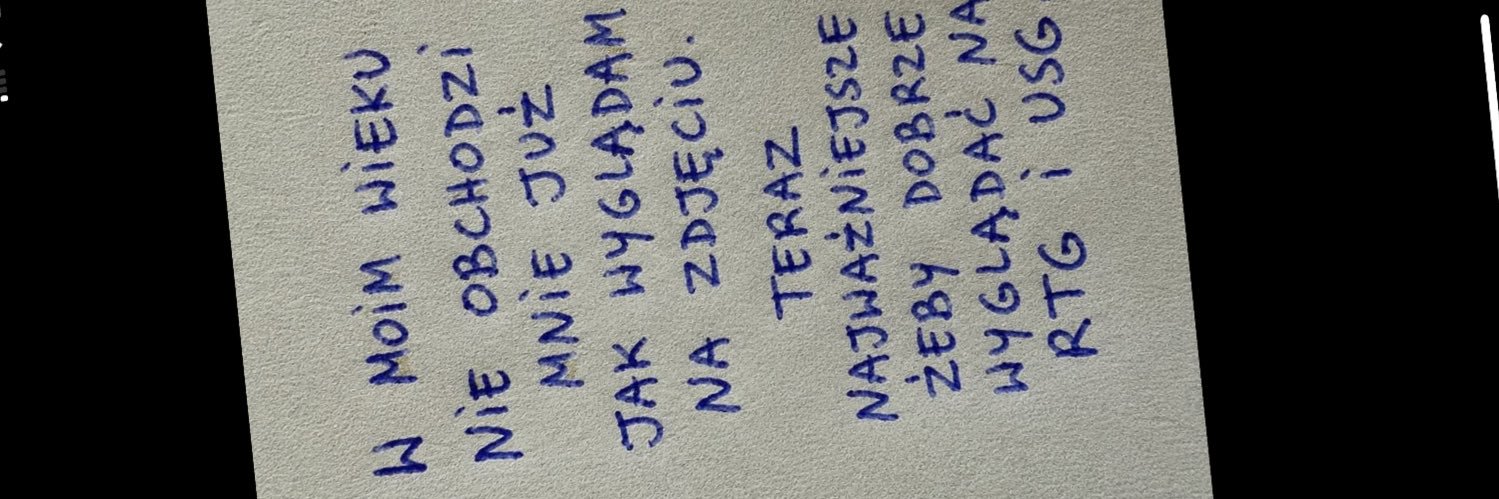 W MOiM WiEKU
NiE OBCHODZi
MNiE JUŻ
JAK WYGLĄDAM
NA ZDJĘCiU.
TERAZ
NAJWAŻNiEJSZE
ŻEBY DOBRZE
WYGLĄDAĆ NA
RTG i USG